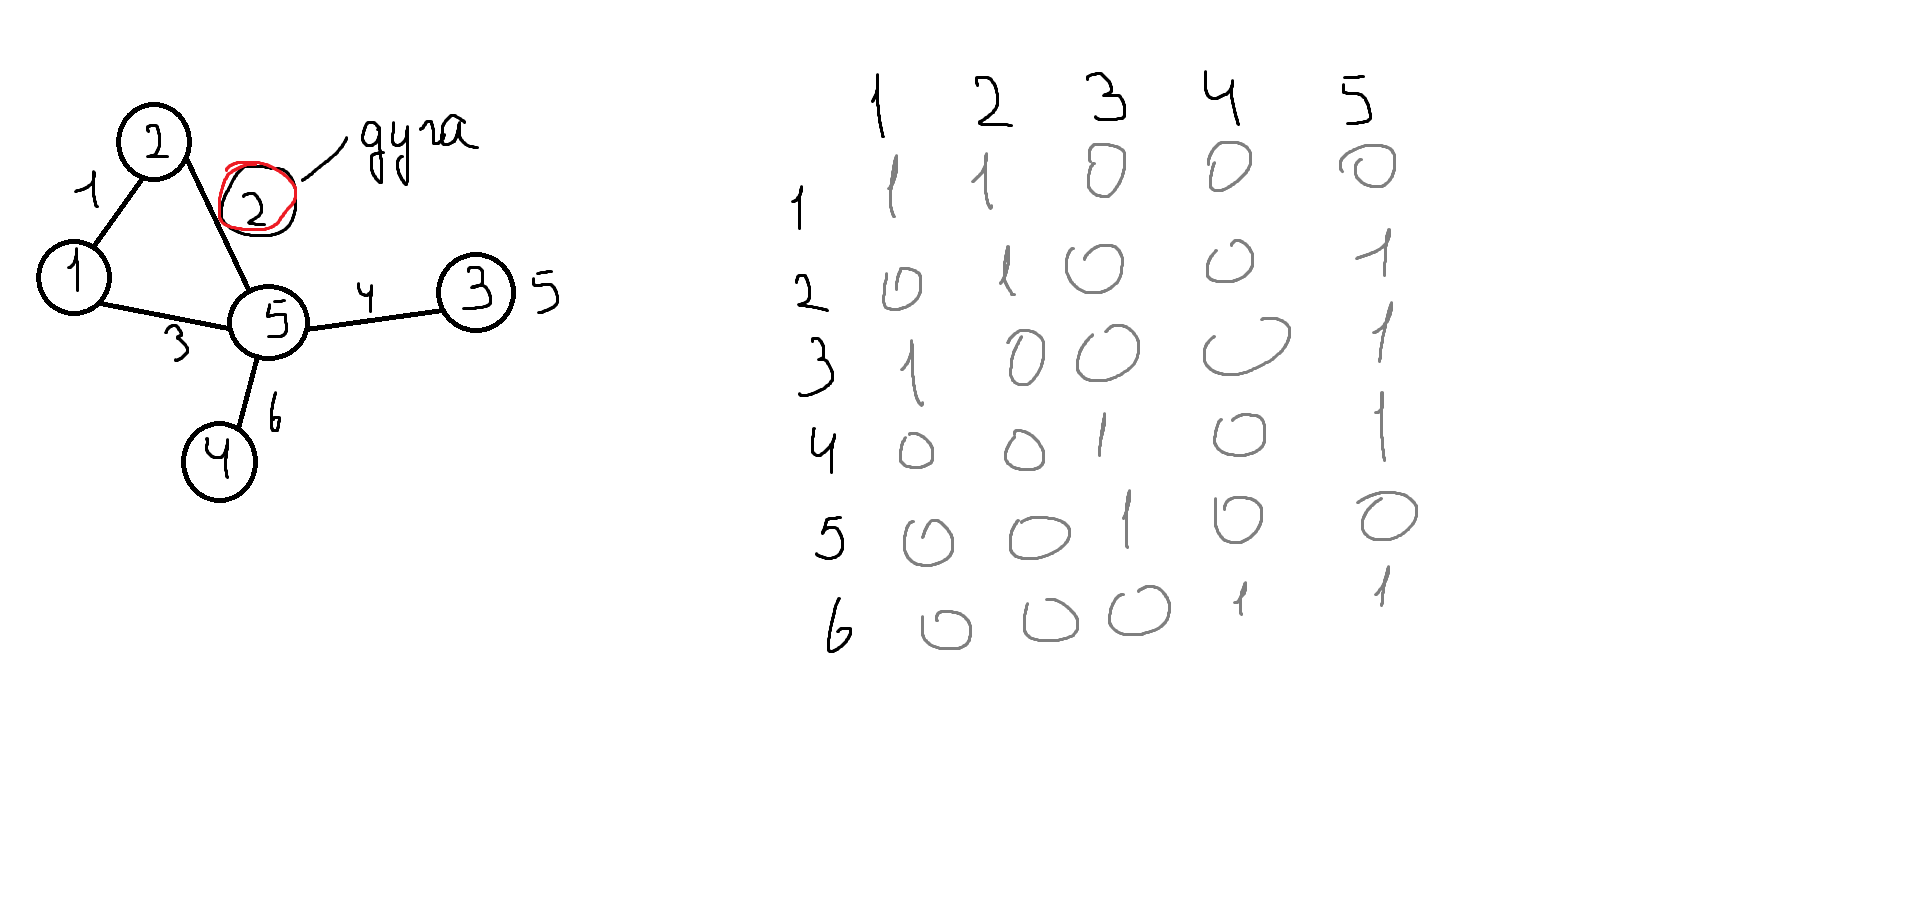 2
дуга
1
2
1
3
5
4
3
5
6
4
1 2 3 4 5
1 1 1 0 0 0
2 0 1 0 0 1
3 1 0 0 0 1
4 0 0 1 0 1
5 0 0 1 0 0
6 0 0 0 1 1